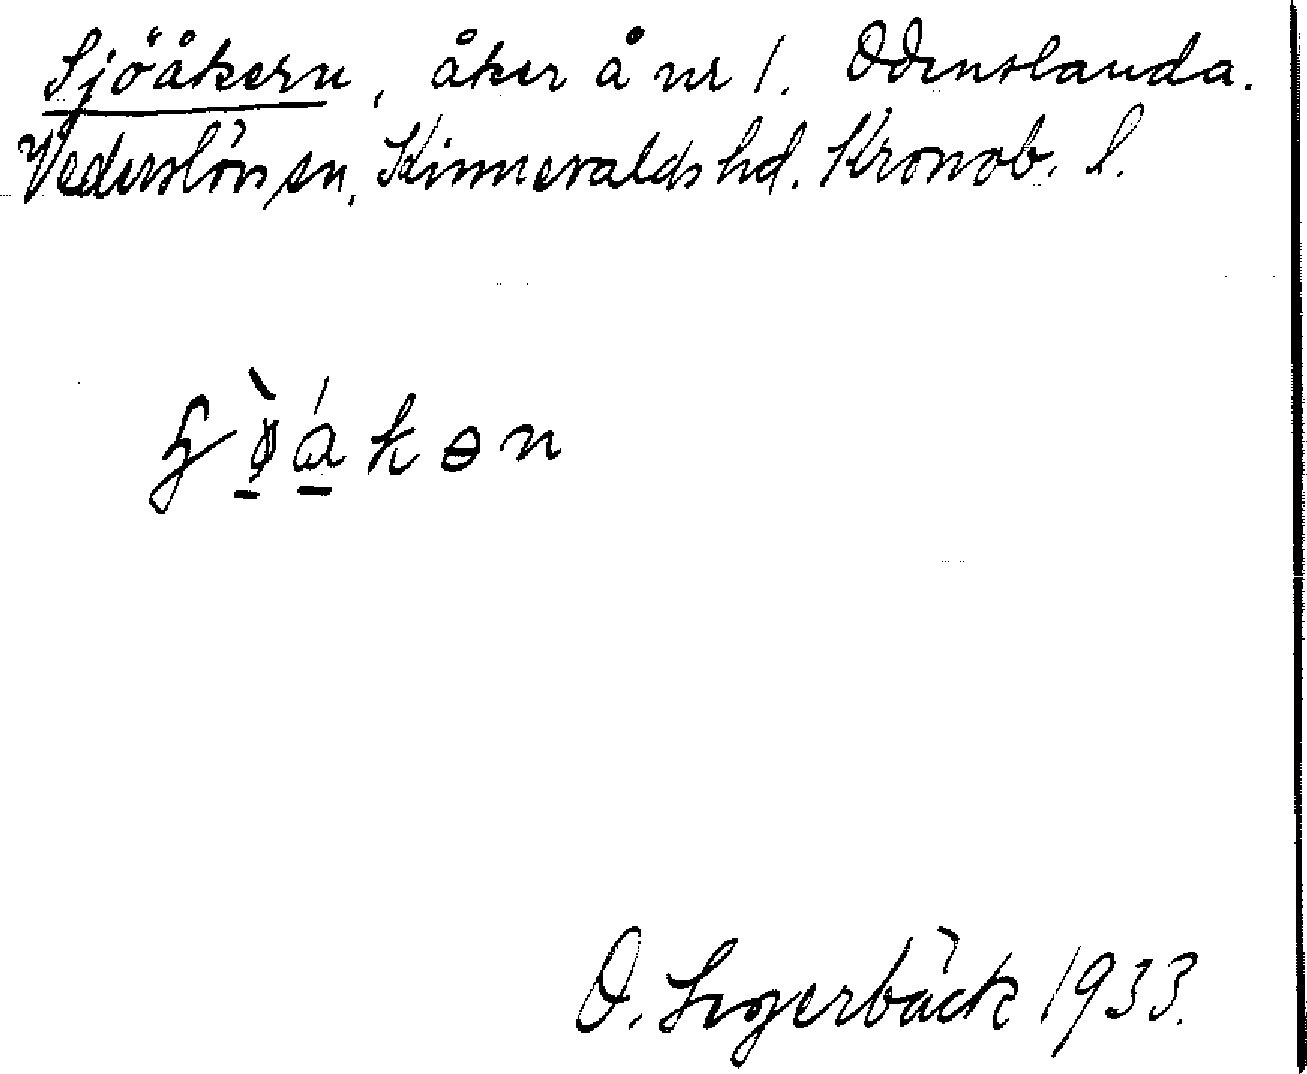 Sjöåkern, åker å nr 1. Odenslanda.
Vederslövs sn, Kinnevalds hd. Kronob. l.
O. Segerbäck 1933.